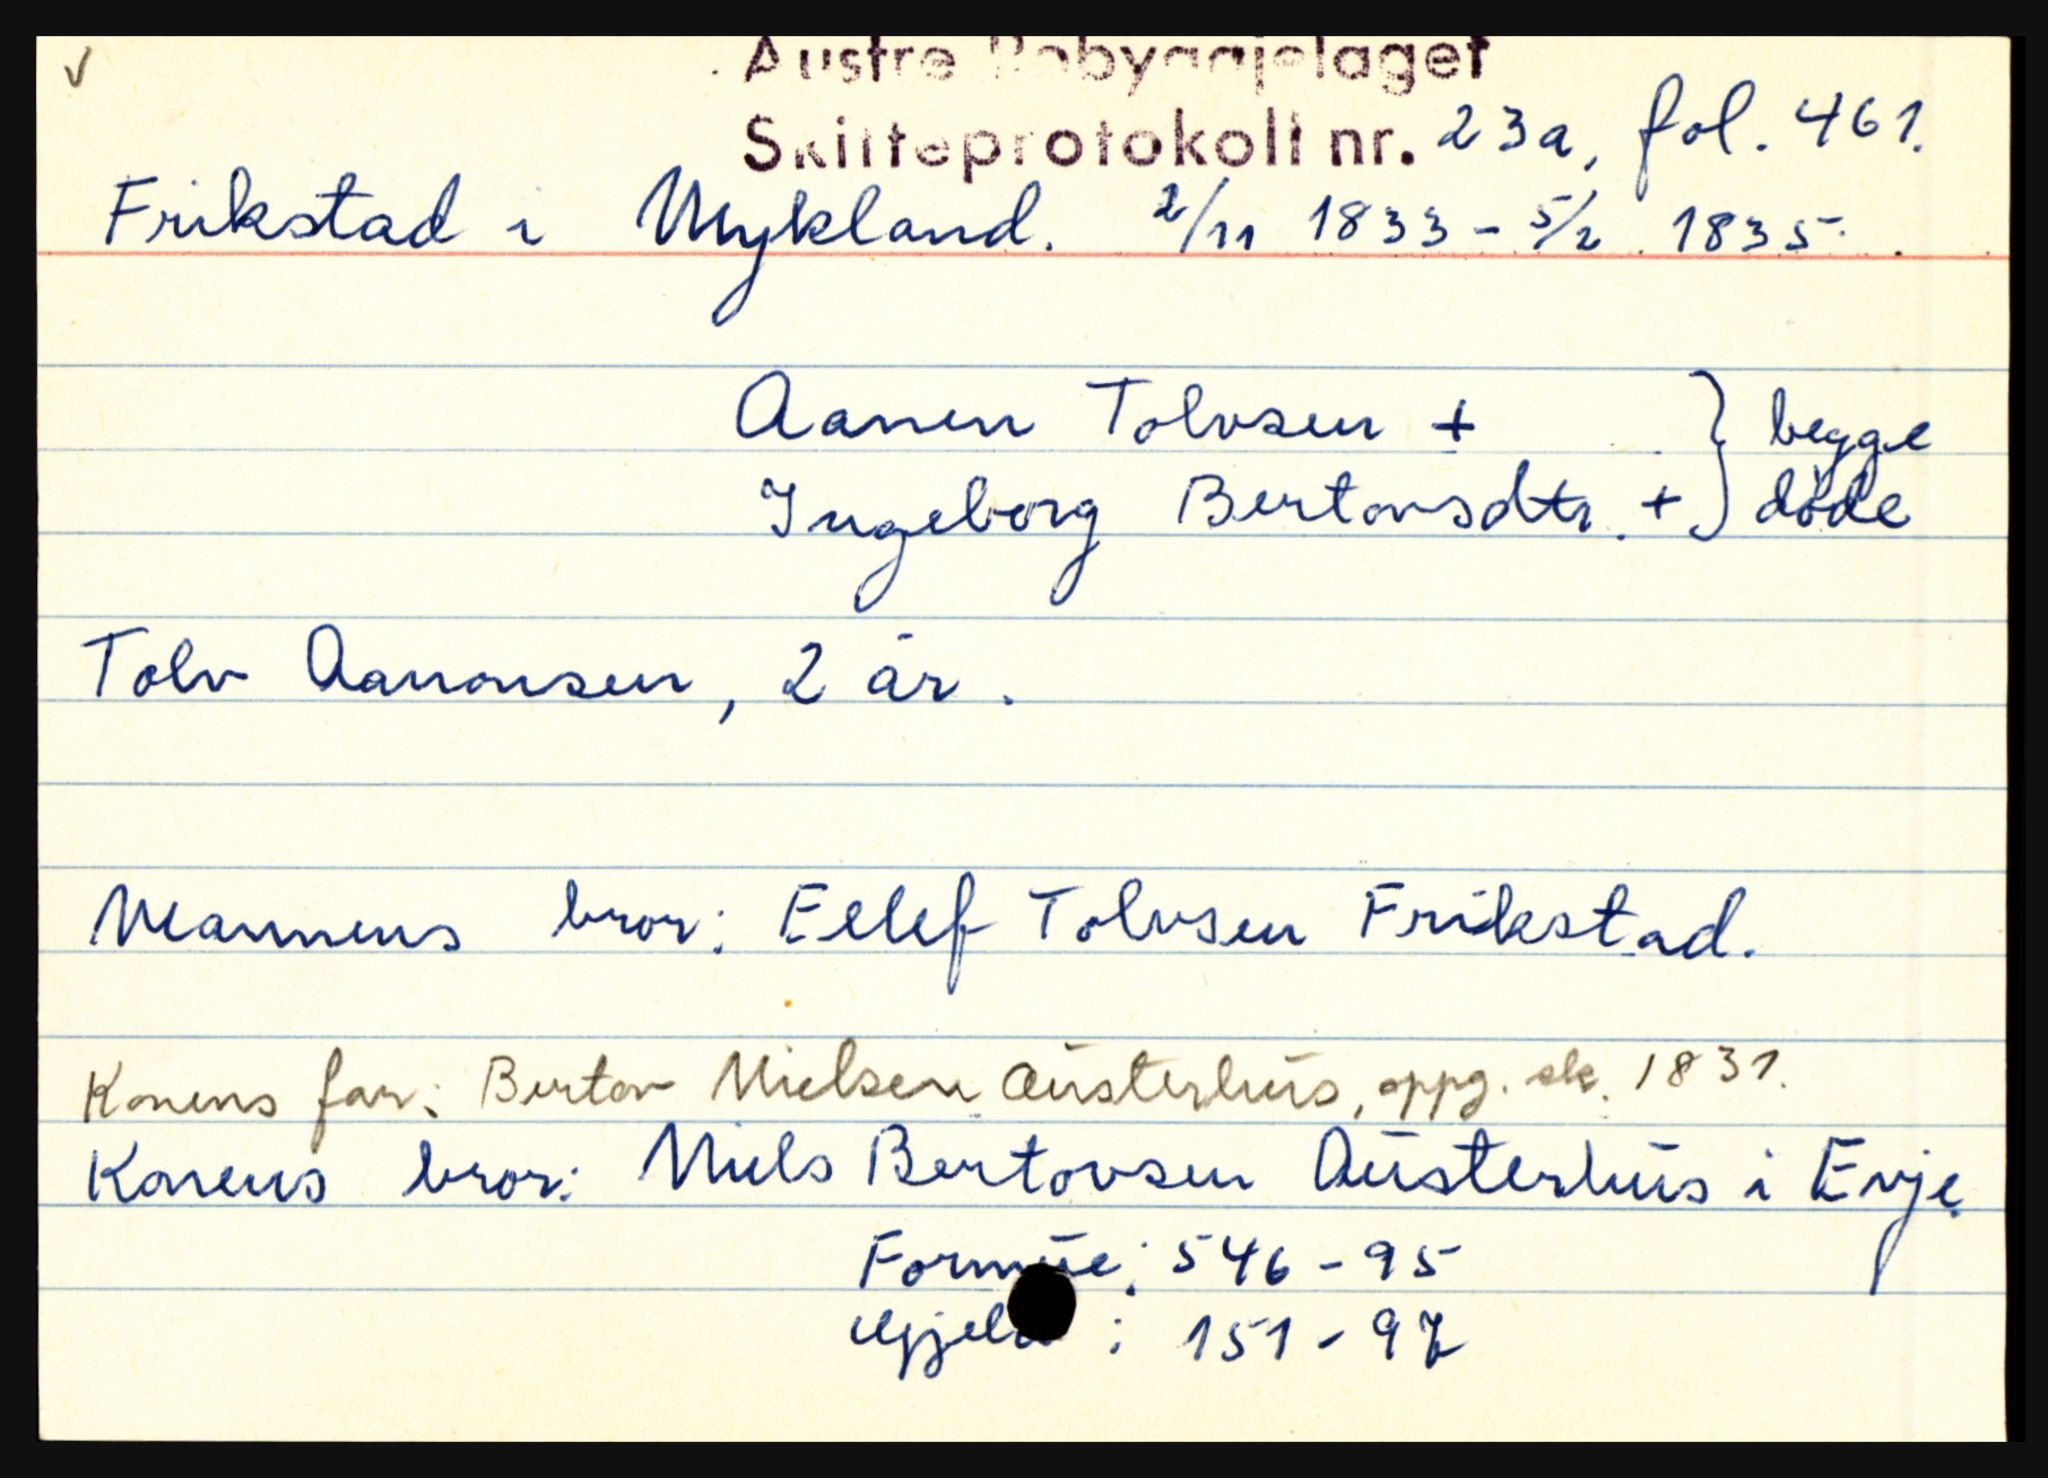 ✓
Austre Råbyggjelaget
Skifteprotokoll nr. 23a, fol. 461.
Frikstad i Mykland. 2/11 1833 - 5/2 1835.
Aanen Tolvsen + } begge
Ingeborg Bertovsdtr. + } döde
Tolv Aanonsen, 2 år.
Mannens bror: Ellef Tolvsen Frikstad.
Konens far: Bertov Nielsen Austerhus, oppg. sk. 1831.
Konens bror: Niels Bertovsen Austerhus i Evje
Formue: 546-95
Gjeld : 151-97